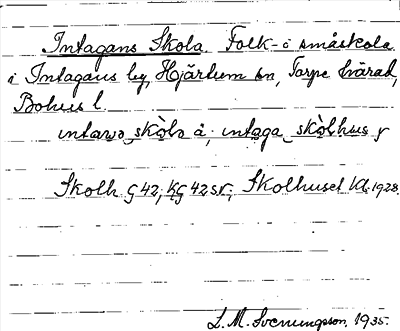 Intagans Skola. Folk- o småskola
i Intagans by, Hjärtum sn, Torpe härad,
Bohus l.
intawa skòla å, intaga skòlhus
Skolh G 42, KG 42 sv, Skolhuset Kl. 1928
L. M. Svenungsson 1935.